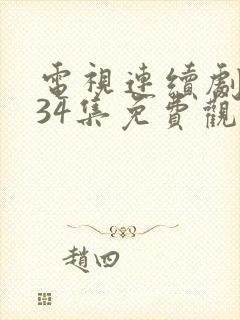 電視連續劇
34集免費觀
趙四